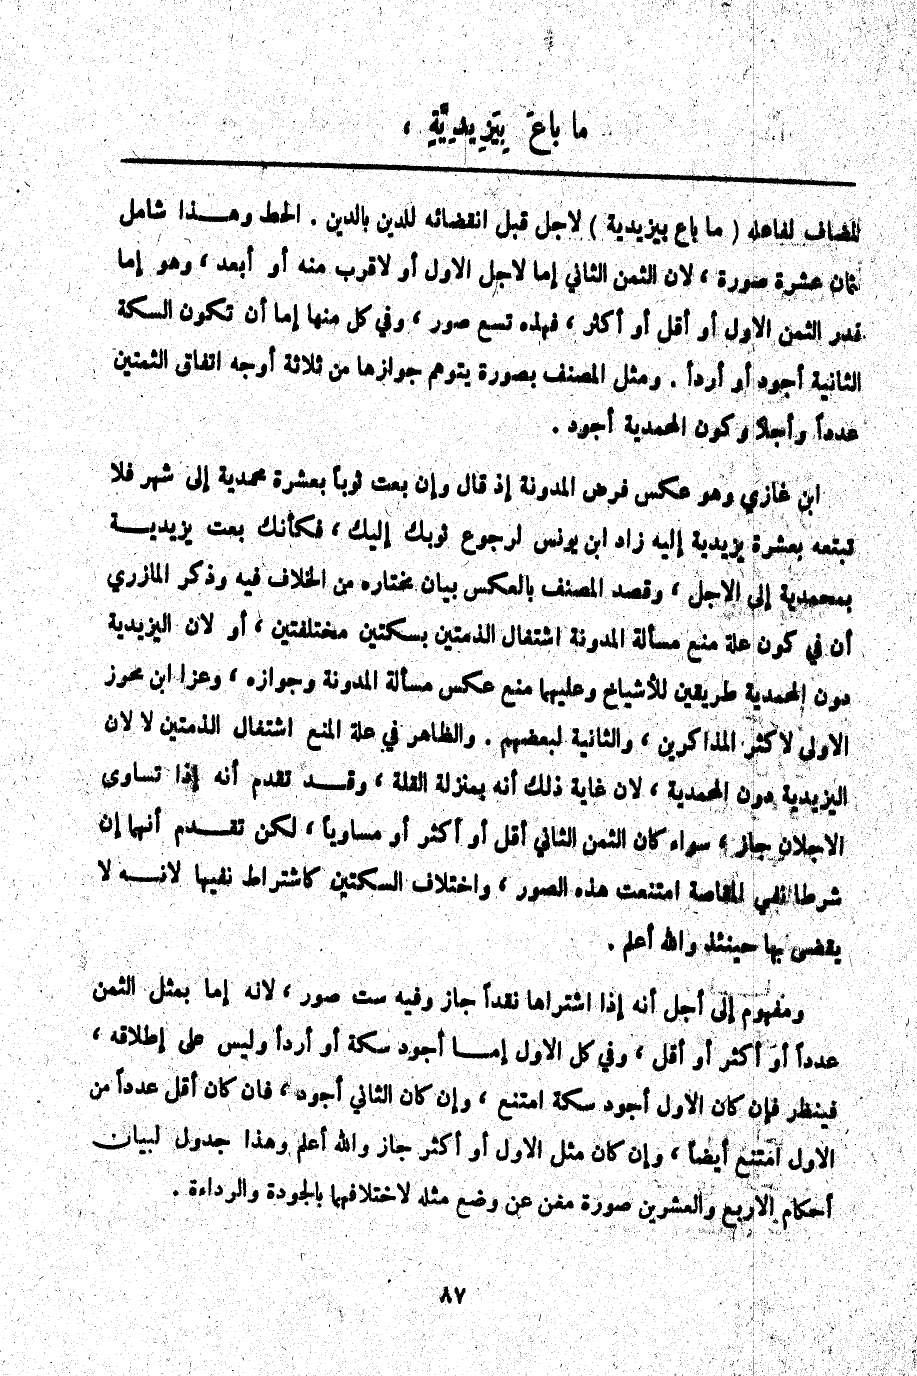 ما باعَ بِيَزِيدِيَّةٍ ،
المضاف لفاعله ( ما باع بيزيدية ) لاجل قبل انقضائه للدين بالدين . الخط وهــذا شامل
لثمان عشرة صورة ، لان الثمن الثاني إما لاجل الاول أو لاقرب منه أو أبعد ، وهو إما
قدر الثمن الاول أو أقل أو أكثر ، فهذه تسع صور ، وفي كل منها إما أن تكون السكة
الثانية أجود أو أردأ . ومثل المصنف بصورة يتوهم جوازها من ثلاثة أوجه اتفاق الثمنين
عدداً وأجلا وكون المحمدية أجود .
ابن غازي وهو عكس فرض المدونة إذ قال وإن بعت ثوباً بعشرة محمدية إلى شهر فلا
تبتعه بعشرة يزيدية إليه زاد ابن يونس لرجوع ثوبك إليك ، فكأنك بعت يزيديــة
بمحمدية إلى الاجل ، وقصد المصنف بالعكس بيان مختاره من الخلاف فيه وذكر المازري
أن في كون علة منع مسألة المدونة اشتغال الذمتين بسكتين مختلفتين ، أو لان اليزيدية
دون المحمدية طريقين للأشياخ وعليهما منع عكس مسألة المدونة وجوازه ، وعزا ابن محرز
الاولى لاكثر المذاكرين ، والثانية لبعضهم . والظاهر في علة المنع اشتغال الذمتين لا لان
اليزيدية دون المحمدية ، لان غاية ذلك أنه بمنزلة القلة ، وقــد تقدم أنه إذا تساوى
الاجلان جاز ، سواء كان الثمن الثاني أقل أو أكثر أو مساوياً ، لكن تقــدم أنهما إن
شرطا نفي المقاصة امتنعت هذه الصور ، واختلاف السكتين كاشتراط نفيها لانــه لا
يقضى بها حينئذ والله أعلم .
ومفهوم إلى أجل أنه إذا اشتراها نقداً جاز وفيه ست صور ، لانه إما بمثل الثمن
عدداً أو أكثر أو أقل ، وفي كل الاول إمــا أجود سكة أو أردأ وليس على إطلاقه ،
فينظر فإن كان الاول أجود سكة امتنع ، وإن كان الثاني أجود ، فان كان أقل عدداً من
الاول امتنع أيضاً ، وإن كان مثل الاول أو أكثر جاز والله أعلم وهذا جدول لبيان
أحكام الاربع والعشرين صورة مغن عن وضع مثله لاختلافهما بالجودة والرداءة .
٨٧